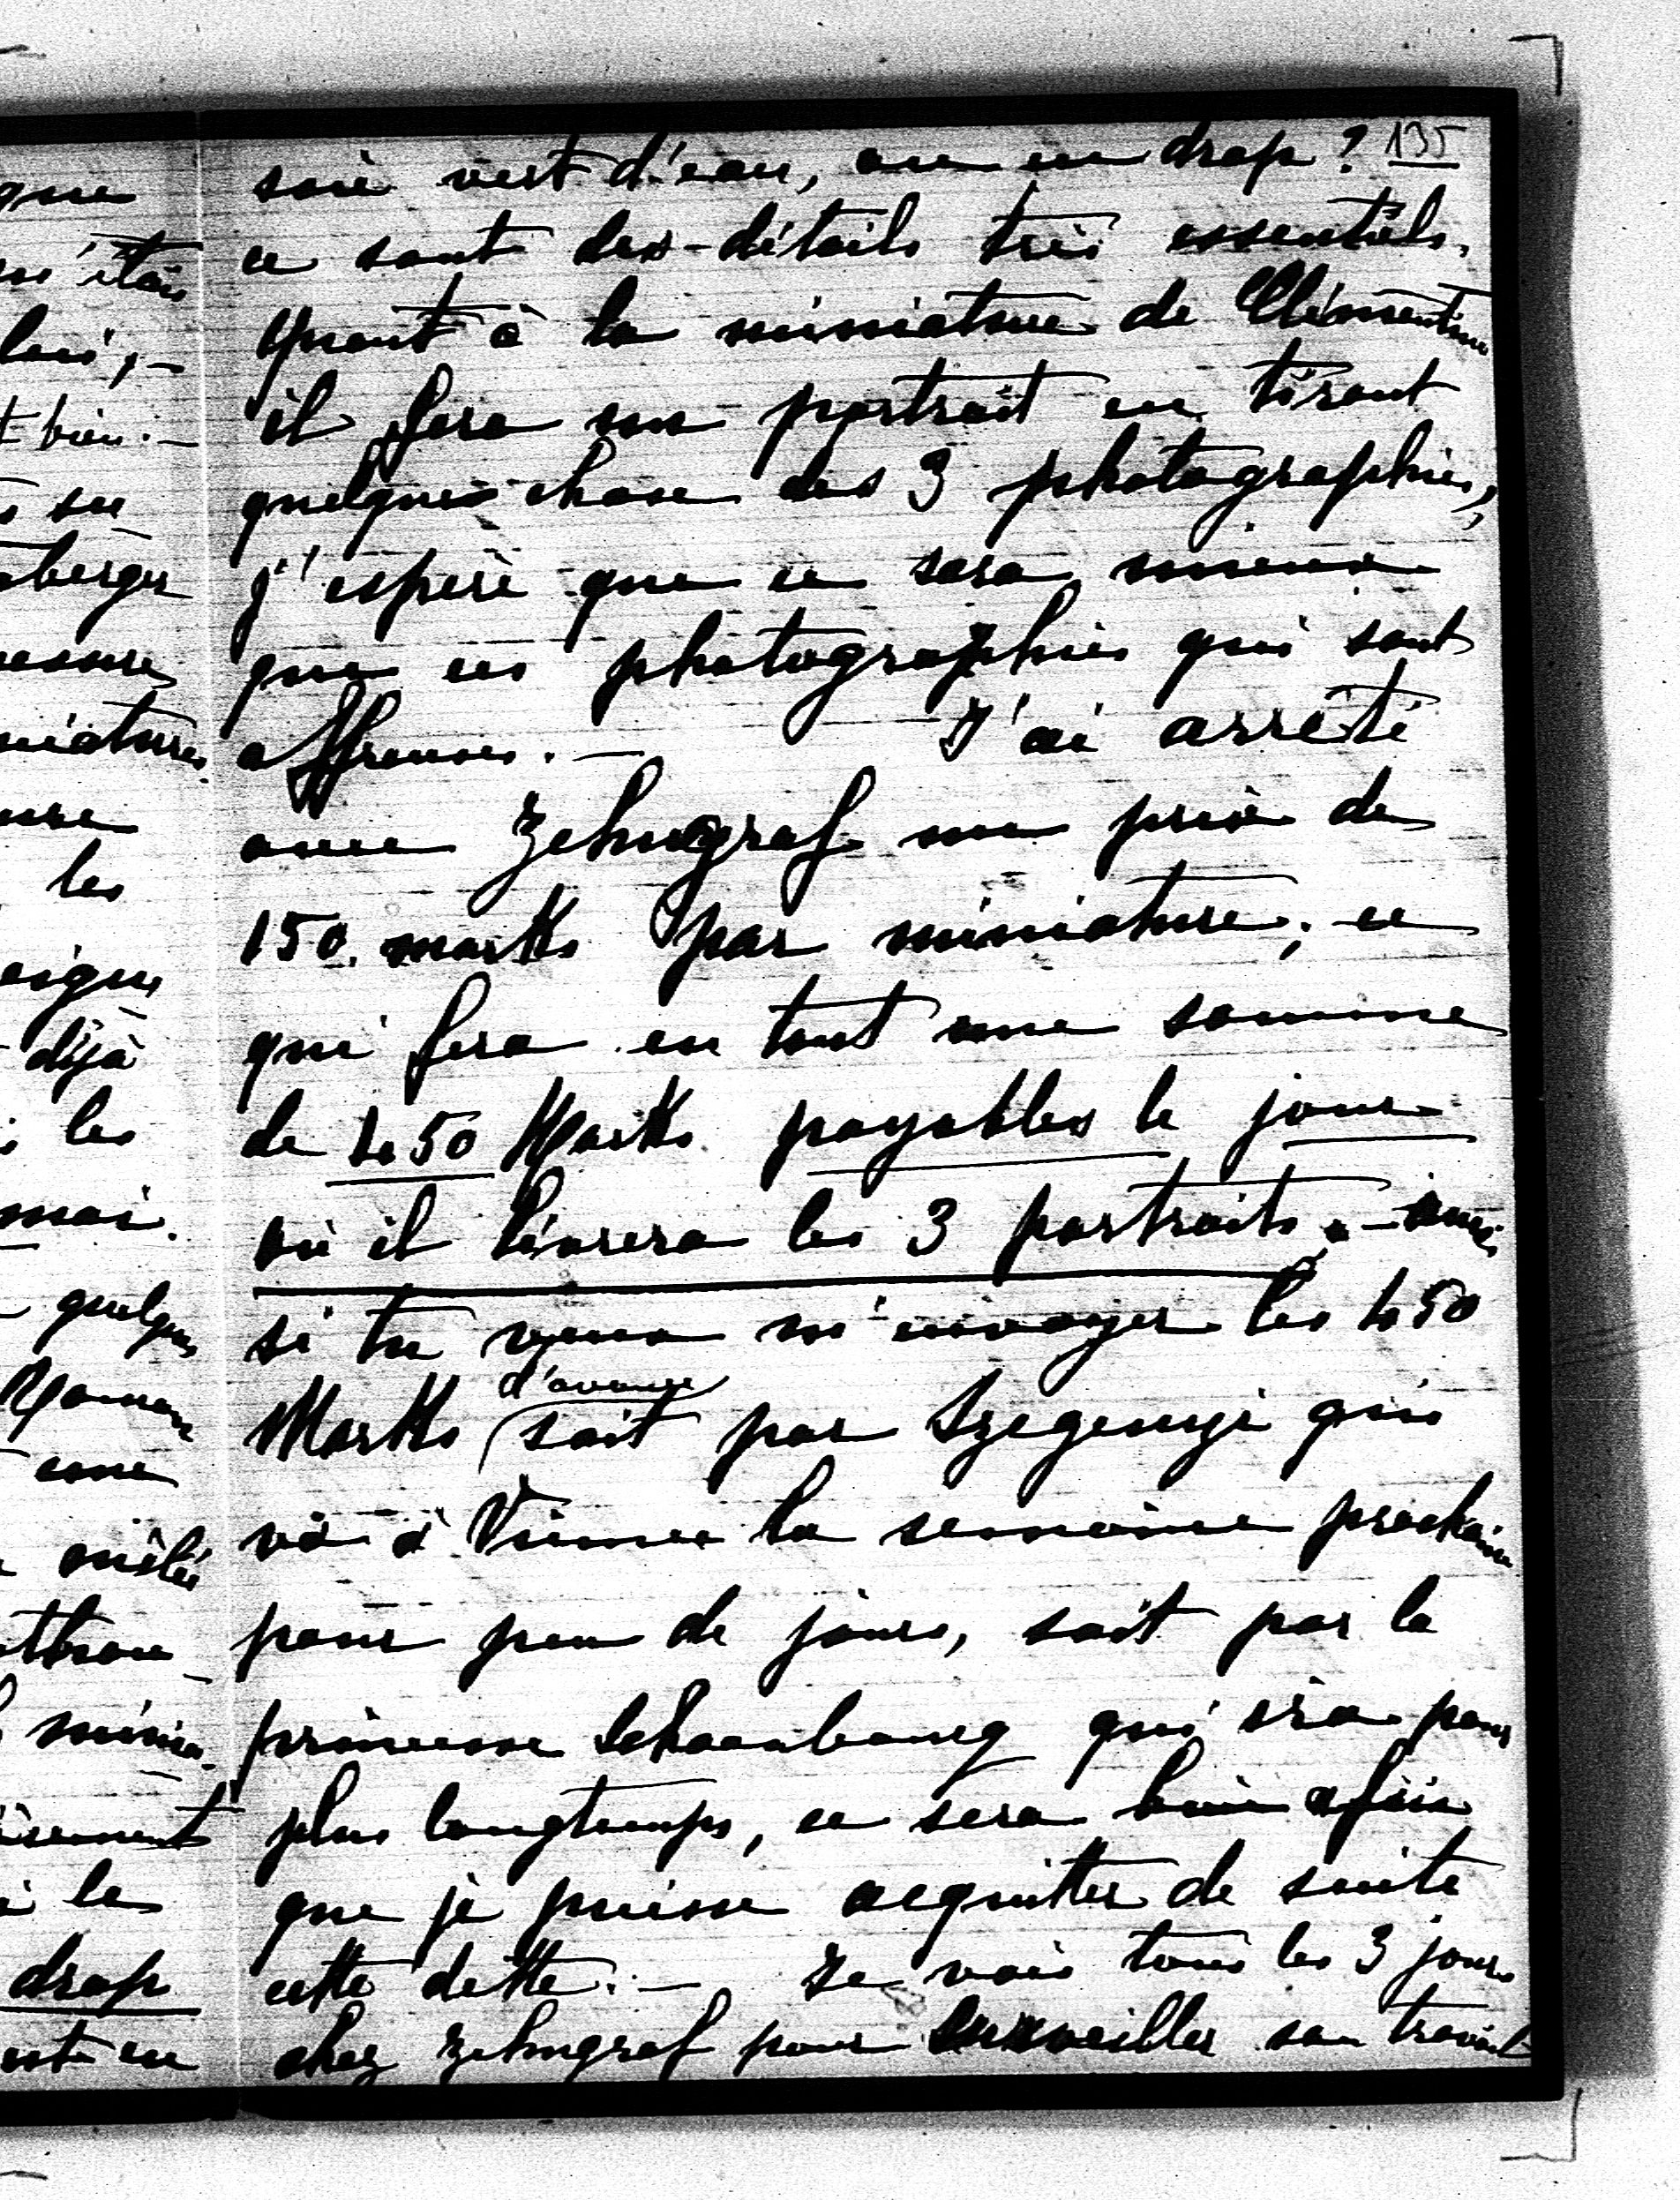 135
soie vert d'eau, ou en drap?
ce sont des détails très essentiels.
Quant à la miniature de Clémentine
il fera un portrait en tirant
quelque chose des 3 photographies,
j'espère que ce sera mieux
que ces photographies qui sont
affreuses. — J'ai arrêté
avec Zehngraf un prix de
150. marks par miniature; ce
qui fera en tout une somme
de 450 Marks payables le jour
où il livrera les 3 portraits. —
si tu veux m'envoyer les 450
d'avance
Marks soit par Szegenyi qui
va à Vienne la semaine prochaine
pour peu de jours, soit par la
princesse Schaenbourg qui ira pour
plus longtemps, ce sera bien afin
que je puisse acquitter de suite
cette dette. — Je vais tous les 3 jours
chez Zehngraf pour surveiller son travail
que
étais
lui; —
bien. —
su
berger
les
déjà
les
moi.
quelques
une
mêlée
le
drap
en